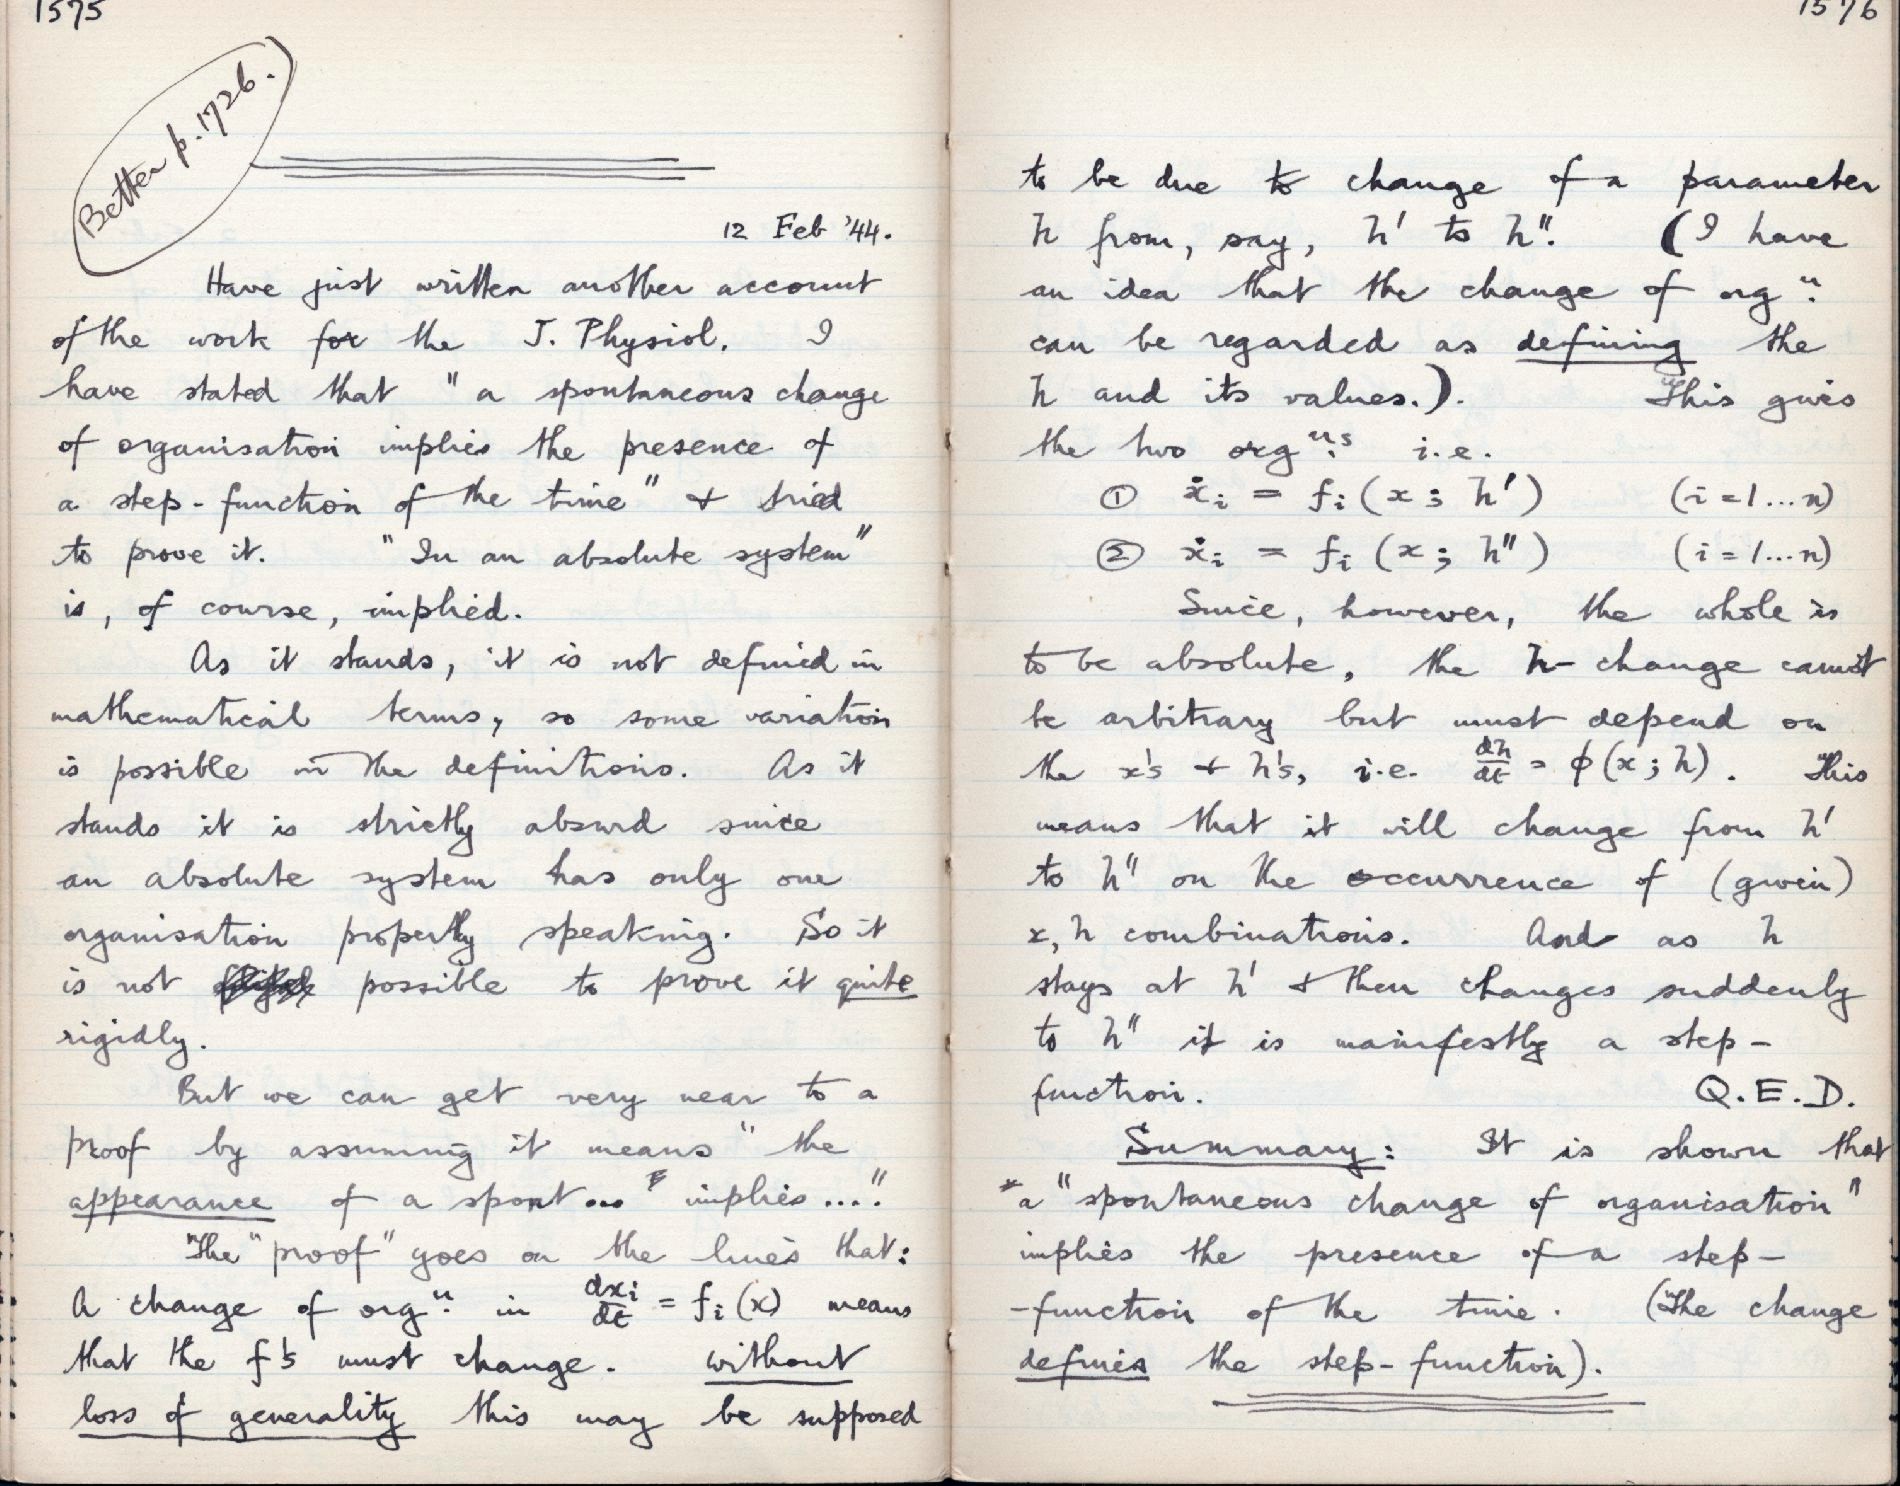 1575
Better p.1726.
12 Feb '44.
Have just written another account
of the work for the J. Physiol. I
have stated that "a spontaneous change
of organisation implies the presence of
a step-function of the time" & tried
to prove it. "In an absolute system"
is, of course, implied.
As it stands, it is not defined in
mathematical terms, so some variation
is possible in the definitions. As it
stands it is strictly absurd since
an absolute system has only one
organisation properly speaking. So it
is not possible to prove it quite
rigidly.
But we can get very near to a
proof by assuming it means "the
appearance of a spont... implies...".
The "proof" goes on the lines that:
A change of orgⁿ. in dxᵢ/dt = fᵢ(x) means
that the f's must change. without
loss of generality this may be supposed
1576
to be due to change of a parameter
h from, say, h' to h". (I have
an idea that the change of orgⁿ.
can be regarded as defining the
h and its values.). This gives
the two orgⁿ.ˢ i.e.
① ẋᵢ = fᵢ(x; h') (i=1...n)
② ẋᵢ = fᵢ(x; h") (i=1...n)
Since, however, the whole is
to be absolute, the h-change cannot
be arbitrary but must depend on
the x's & h's, i.e. dh/dt = φ(x; h). This
means that it will change from h'
to h" on the occurrence of (given)
x, h combinations. And as h
stays at h' & then changes suddenly
to h" it is manifestly a step-
function. Q.E.D.
Summary: It is shown that
a "spontaneous change of organisation"
implies the presence of a step-
-function of the time. (The change
defines the step-function).